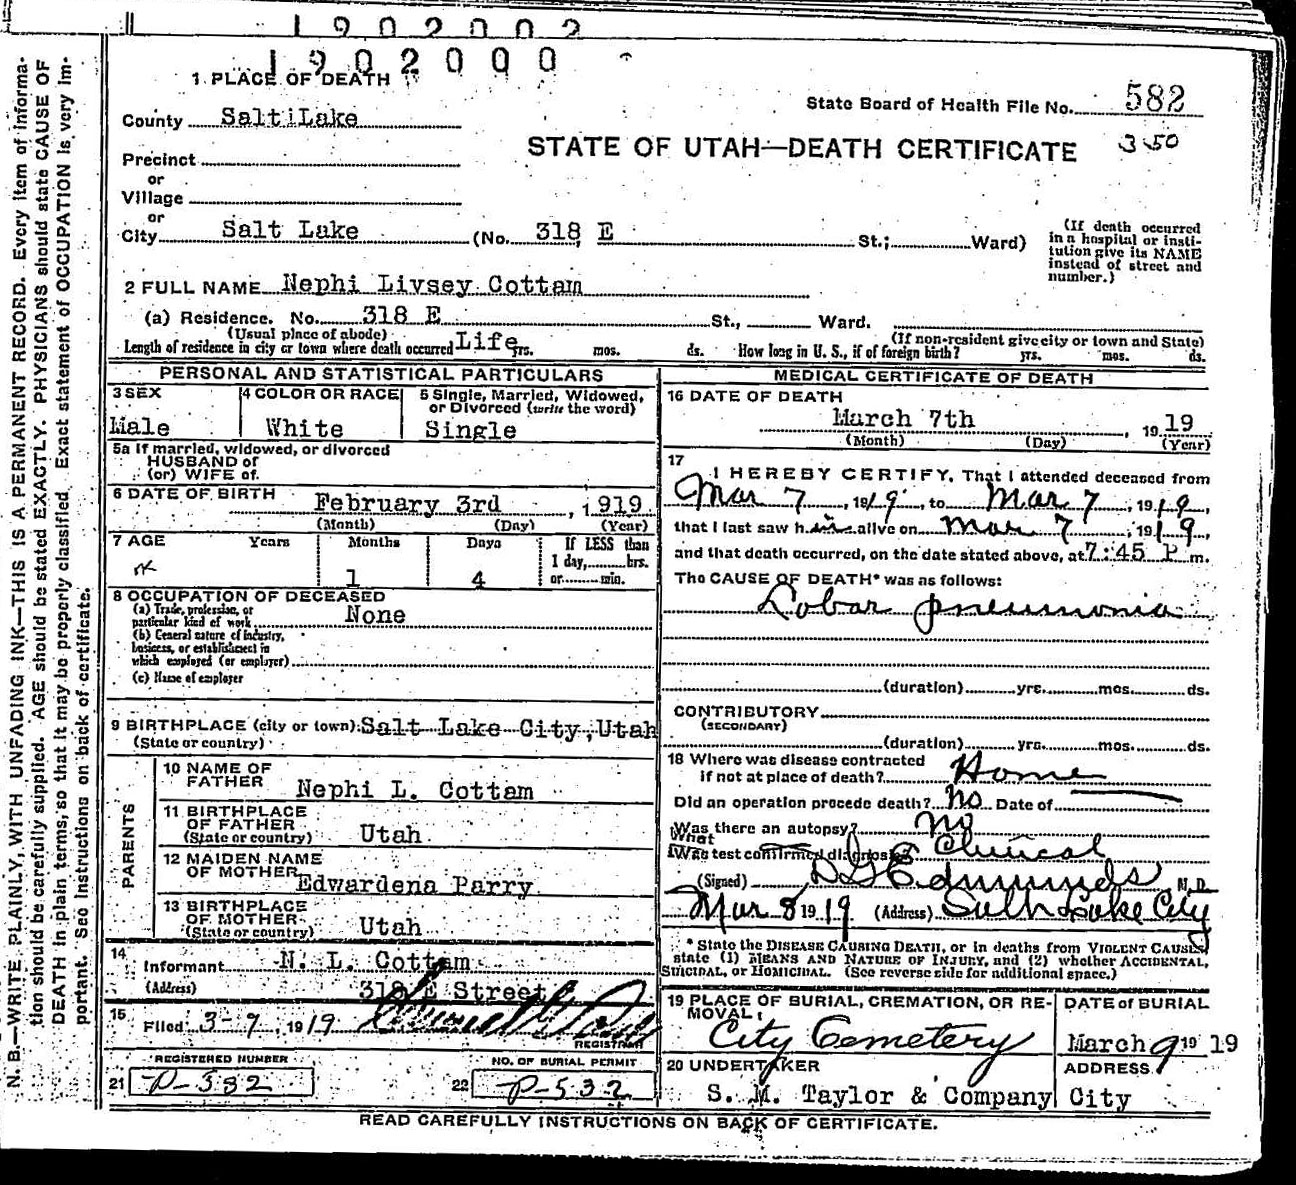 1902002
1902000
1 PLACE OF DEATH
State Board of Health File No. 582
County Salt Lake
STATE OF UTAH—DEATH CERTIFICATE 350
Precinct
or
Village
or
City Salt Lake (No. 318 E St.; Ward)
(If death occurred
in a hospital or insti-
tution give its NAME
instead of street and
number.)
2 FULL NAME Nephi Livsey Cottam
(a) Residence. No. 318 E St., Ward.
(Usual place of abode) (If non-resident give city or town and State)
Length of residence in city or town where death occurred Life yrs. mos. ds. How long in U. S., if of foreign birth? yrs. mos. ds.
PERSONAL AND STATISTICAL PARTICULARS
3 SEX 4 COLOR OR RACE 5 Single, Married, Widowed,
or Divorced (write the word)
Male White Single
5a If married, widowed, or divorced
HUSBAND of
(or) WIFE of
6 DATE OF BIRTH February 3rd, 1919
(Month) (Day) (Year)
7 AGE Years Months Days If LESS than
1 day, hrs.
1 4 or min.
8 OCCUPATION OF DECEASED
(a) Trade, profession, or
particular kind of work None
(b) General nature of industry,
business, or establishment in
which employed (or employer)
(c) Name of employer
9 BIRTHPLACE (city or town) Salt Lake City, Utah
(State or country)
PARENTS
10 NAME OF
FATHER Nephi L. Cottam
11 BIRTHPLACE
OF FATHER
(State or country) Utah
12 MAIDEN NAME
OF MOTHER Edwardena Parry
13 BIRTHPLACE
OF MOTHER
(State or country) Utah
14
Informant N. L. Cottam
(Address) 318 E Street
15
Filed 3-9, 1919
REGISTRAR
REGISTERED NUMBER NO. OF BURIAL PERMIT
21 P-532 22 P-532
MEDICAL CERTIFICATE OF DEATH
16 DATE OF DEATH
March 7th 1919
(Month) (Day) (Year)
17
I HEREBY CERTIFY, That I attended deceased from
Mar 7, 1919, to Mar 7, 1919,
that I last saw him alive on Mar 7, 1919,
and that death occurred, on the date stated above, at 7:45 P m.
The CAUSE OF DEATH* was as follows:
Lobar pneumonia
(duration) yrs. mos. ds.
CONTRIBUTORY
(SECONDARY)
(duration) yrs. mos. ds.
18 Where was disease contracted
if not at place of death? Home
Did an operation precede death? No Date of
Was there an autopsy? No
What test confirmed diagnosis? Clinical
(Signed) D G Edmunds M. D.
Mar 8 1919 (Address) Salt Lake City
* State the DISEASE CAUSING DEATH, or in deaths from VIOLENT CAUSES,
state (1) MEANS AND NATURE OF INJURY, and (2) whether ACCIDENTAL,
SUICIDAL, or HOMICIDAL. (See reverse side for additional space.)
19 PLACE OF BURIAL, CREMATION, OR RE-
MOVAL: City Cemetery
DATE of BURIAL
March 9 1919
20 UNDERTAKER
S. M. Taylor & Company
ADDRESS
City
READ CAREFULLY INSTRUCTIONS ON BACK OF CERTIFICATE.
N. B.—WRITE PLAINLY, WITH UNFADING INK—THIS IS A PERMANENT RECORD. Every item of informa-
tion should be carefully supplied. AGE should be stated EXACTLY. PHYSICIANS should state CAUSE OF
DEATH in plain terms, so that it may be properly classified. Exact statement of OCCUPATION is very im-
portant. See instructions on back of certificate.